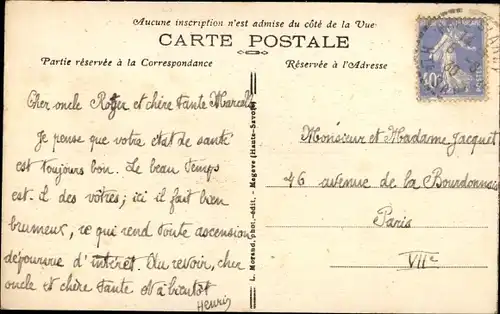 Aucune inscription n'est admise du côté de la Vue
CARTE POSTALE
Partie réservée à la Correspondance
Réservée à l'Adresse
Cher oncle Roger et chère tante Marcelle
Je pense que votre état de santé
est toujours bon. Le beau temps
est-il des vôtres; ici il fait bien
brumeux, ce qui rend toute ascension
dépourvue d'intérêt. Au revoir, cher
oncle et chère tante et à bientôt
Henri
L. Morand, phot.-édit. - Megève (Haute-Savoie)
Monsieur et Madame Jacquet
46 avenue de la Bourdonnais
Paris
VIIe
40c
POSTES